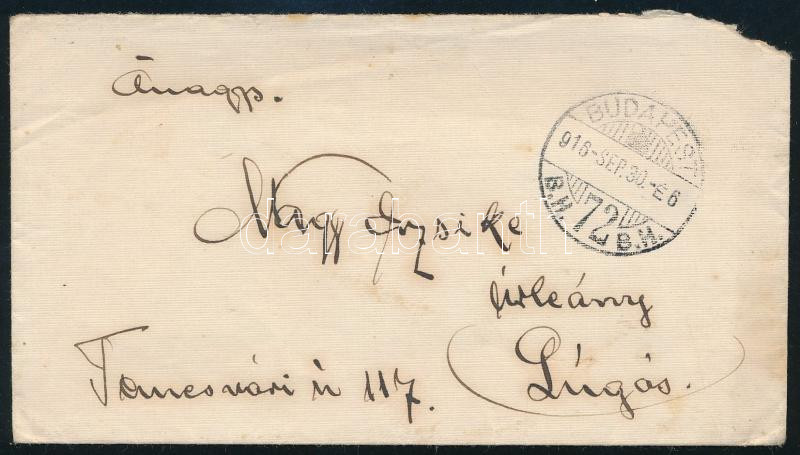 Őnagys.
BUDAPEST
916-SEP.30.-E6
B.H. 72 B.H.
Nagy Jozsike
Úrleány
Temesvári ú 117.
Lúgós.
darabanth